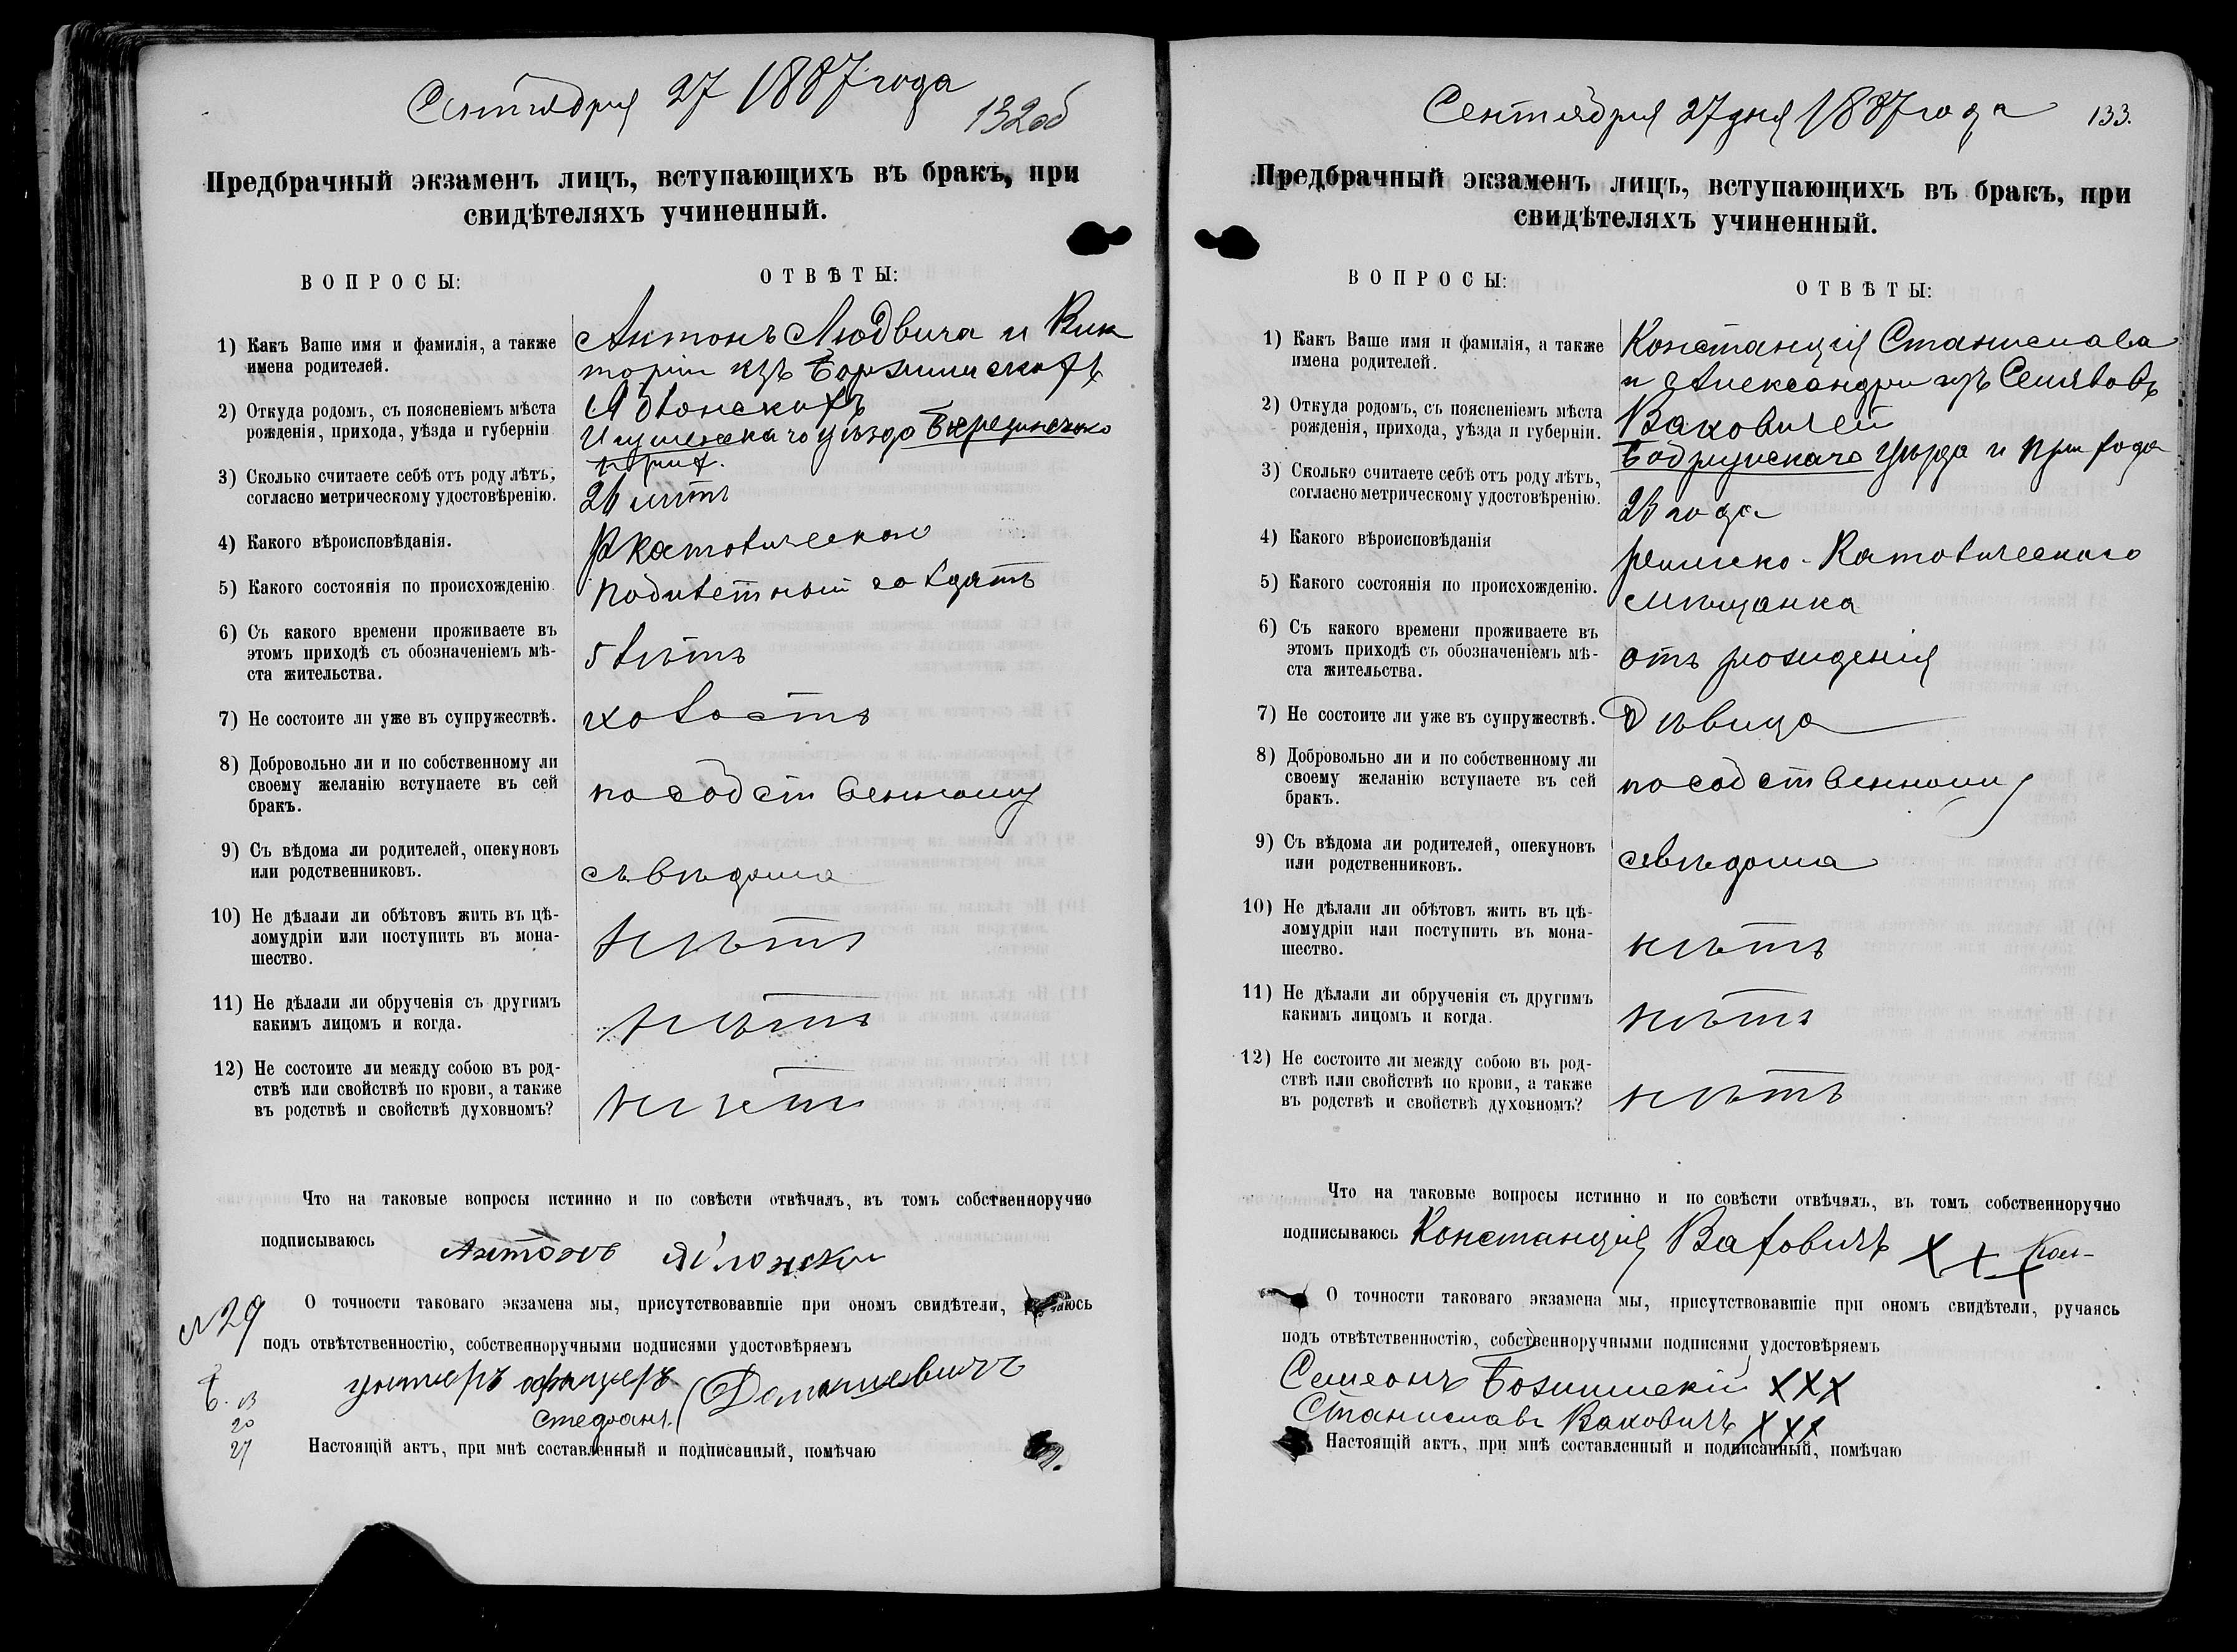 Сентября 27 1887 года
132об
Предбрачный экзаменъ лицъ, вступающихъ въ бракъ, при
свидѣтеляхъ учиненный.
ВОПРОСЫ:
ОТВѢТЫ:
1) Какъ Ваше имя и фамилія, а также
имена родителей.
Антонъ Людвига и Вик
торіи изъ
2) Откуда родомъ, съ поясненіемъ мѣста
рожденія, прихода, уѣзда и губерніи
Игуменскаго уѣзда Березинскаго
прих.
3) Сколько считаете себѣ отъ роду лѣтъ,
согласно метрическому удостовѣренію.
26 лѣтъ
4) Какого вѣроисповѣданія.
Р Католическаго
5) Какого состоянія по происхожденію
солдатъ
6) Съ какого времени проживаете въ
этомъ приходѣ съ обозначеніемъ мѣ-
ста жительства.
5 лѣтъ
7) Не состоите ли уже въ супружествѣ.
холостъ
8) Добровольно ли и по собственному ли
своему желанію вступаете въ сей
бракъ.
по собственному
9) Съ вѣдома ли родителей, опекуновъ
или родственниковъ.
съ вѣдома
10) Не дѣлали ли обѣтовъ жить въ цѣ-
ломудріи или поступить въ мона-
шество.
нѣтъ
11) Не дѣлали ли обрученія съ другимъ
какимъ лицомъ и когда.
нѣтъ
12) Не состоите ли между собою въ род-
ствѣ или свойствѣ по крови, а также
въ родствѣ и свойствѣ духовномъ?
нѣтъ
Что на таковые вопросы истинно и по совѣсти отвѣчалъ, въ томъ собственноручно
подписываюсь Антонъ
N 29
О точности таковаго экзамена мы, присутствовавшіе при ономъ свидѣтели,
подъ отвѣтственностію, собственноручными подписями удостовѣряемъ
унтеръ офицеръ
13
20
27
Настоящій актъ, при мнѣ составленный и подписанный, помѣчаю
Сентября 27 дня 1887 года
133.
Предбрачный экзаменъ лицъ, вступающихъ въ бракъ, при
свидѣтеляхъ учиненный.
ВОПРОСЫ:
ОТВѢТЫ:
1) Какъ Ваше имя и фамилія, а также
имена родителей.
Констанція Станислава
и Александры изъ
2) Откуда родомъ, съ поясненіемъ мѣста
рожденія, прихода, уѣзда и губерніи.
Ваковичей
Бобруйскаго уѣзда и прихода
3) Сколько считаете себѣ отъ роду лѣтъ,
согласно метрическому удостовѣренію.
23 года
4) Какого вѣроисповѣданія
римско-Католическаго
5) Какого состоянія по происхожденію.
мѣщанка
6) Съ какого времени проживаете въ
этомъ приходѣ съ обозначеніемъ мѣ-
ста жительства.
отъ рожденія
7) Не состоите ли уже въ супружествѣ.
Дѣвица
8) Добровольно ли и по собственному ли
своему желанію вступаете въ сей
бракъ.
по собственному
9) Съ вѣдома ли родителей, опекуновъ
или родственниковъ.
съ вѣдома
10) Не дѣлали ли обѣтовъ жить въ цѣ-
ломудріи или поступить въ мона-
шество.
нѣтъ
11) Не дѣлали ли обрученія съ другимъ
какимъ лицомъ и когда.
нѣтъ
12) Не состоите ли между собою въ род-
ствѣ или свойствѣ по крови, а также
въ родствѣ и свойствѣ духовномъ?
нѣтъ
Что на таковые вопросы истинно и по совѣсти отвѣчалъ, въ томъ собственноручно
подписываюсь Констанція Ваковичъ XXX
О точности таковаго экзамена мы, присутствовавшіе при ономъ свидѣтели, ручаясь
подъ отвѣтственностію, собственноручными подписями удостовѣряемъ
XXX
Станиславъ Ваковичъ XXX
Настоящій актъ, при мнѣ составленный и подписанный, помѣчаю